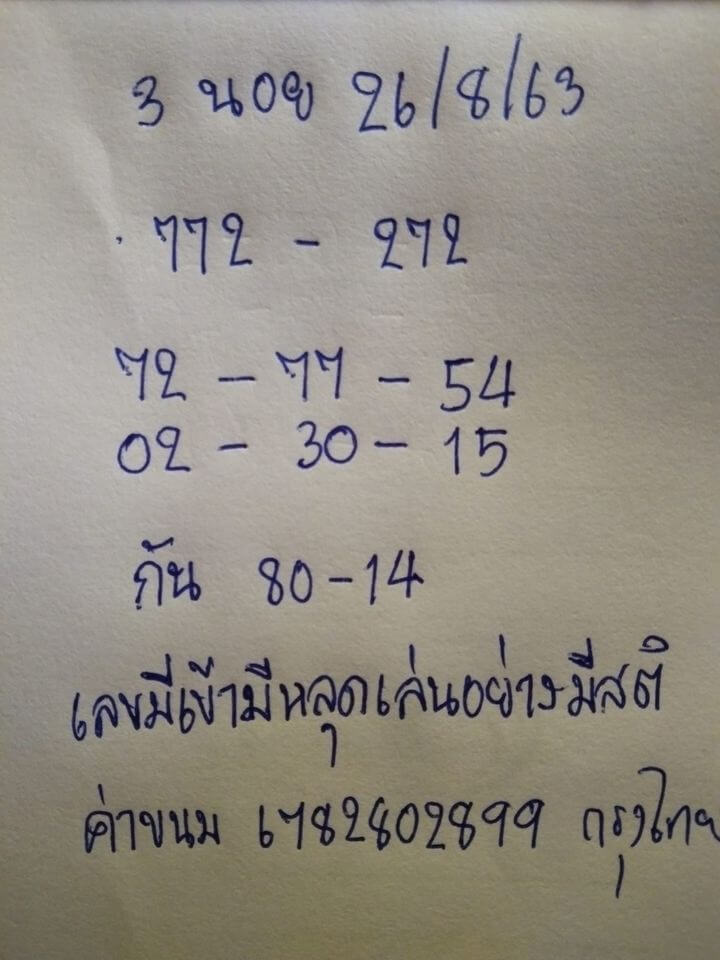 3 นอย 26/8/63
772 - 272
72 - 77 - 54
02 - 30 - 15
กัน 80-14
เลขมีเข้ามีหลุดเล่นอย่างมีสติ
ค่าขนม 6782802899 กรุงไทย